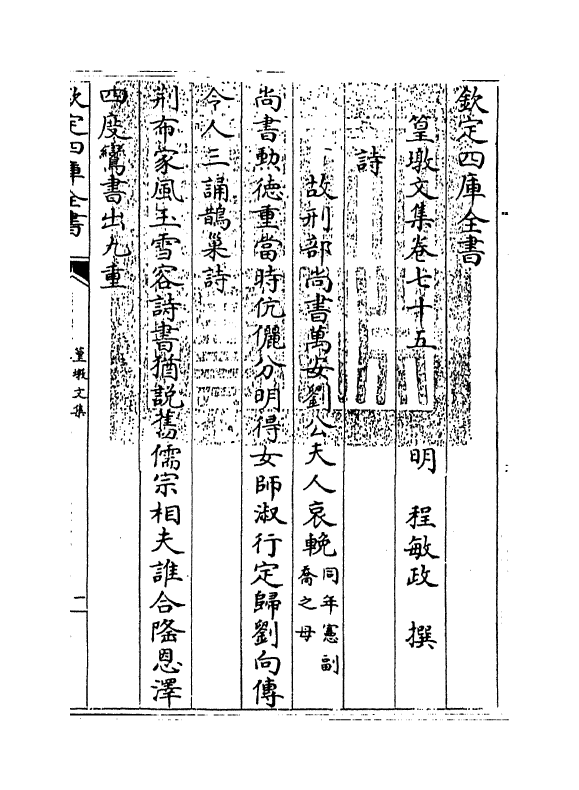 欽定四庫全書
篁墩文集卷七十五　明　程敏政　撰
詩
故刑部尚書萬安劉公夫人哀輓同年憲副喬之母
尚書勲徳重當時伉儷分明得女師淑行定歸劉向傳
令人三誦鵲巢詩
荆布家風玉雪容詩書猶説舊儒宗相夫誰合隆恩澤
四度鸞書出九重
欽定四庫全書
篁墩文集